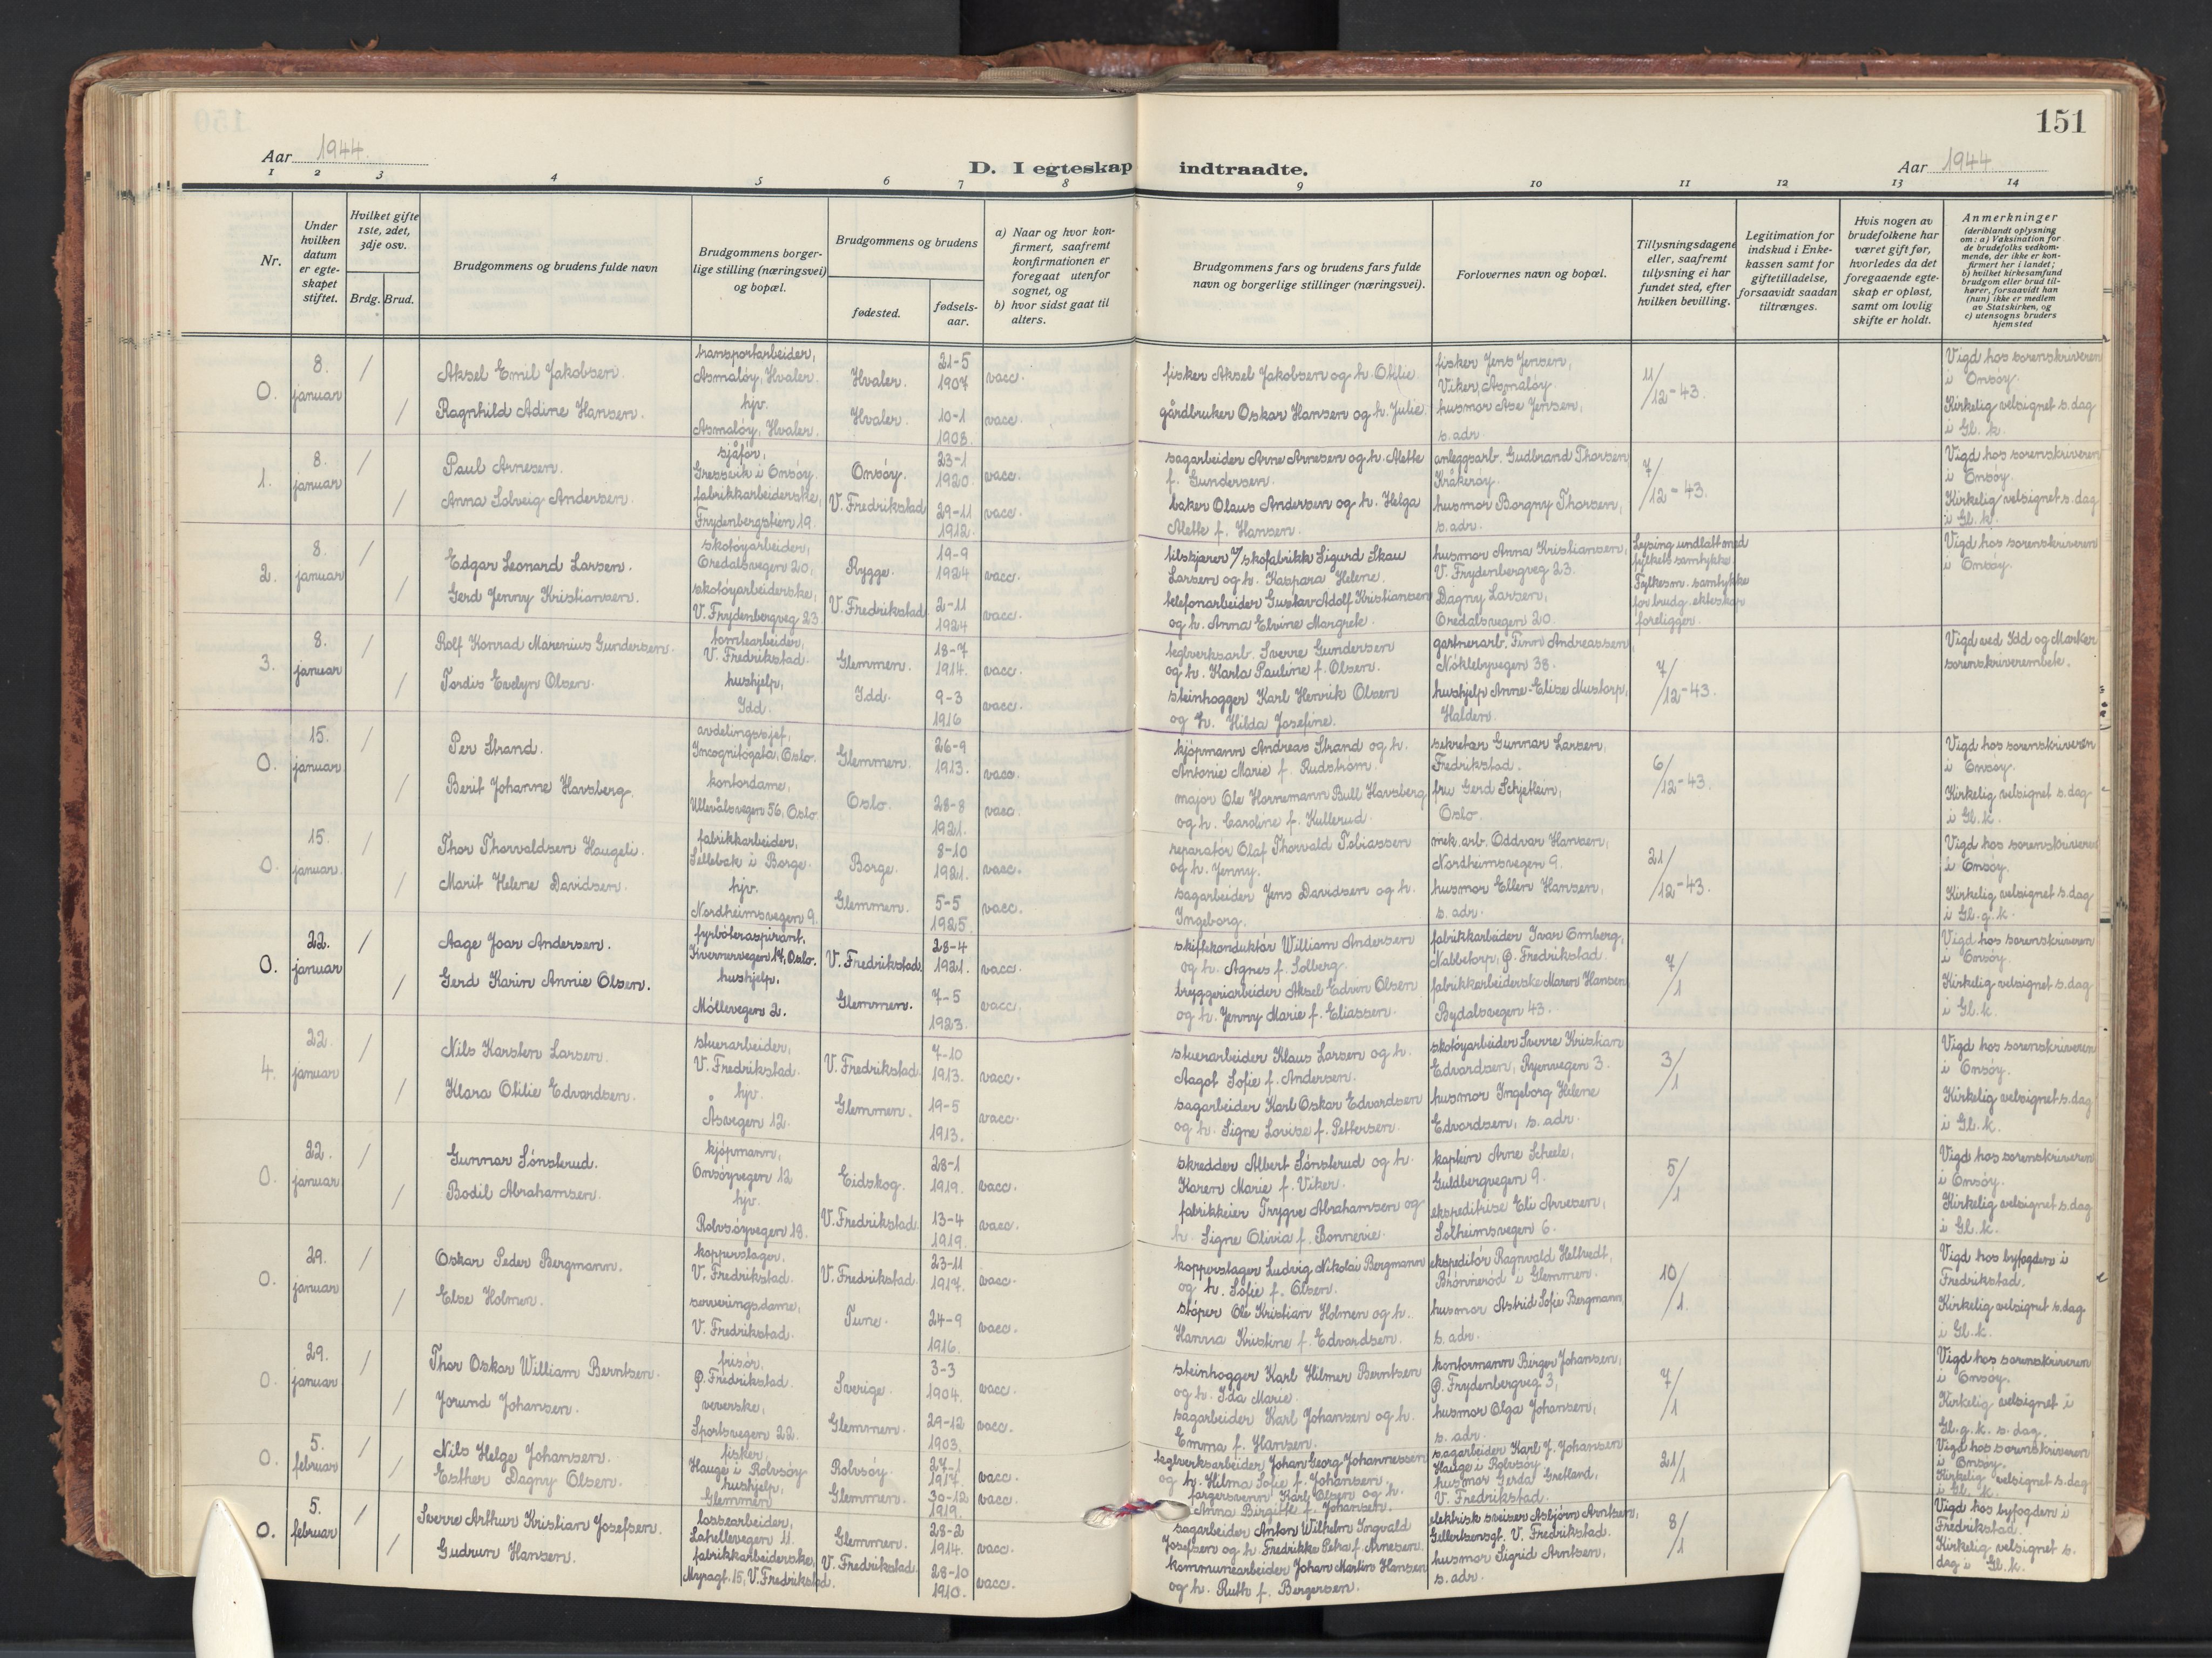 151
Aar 1944.
D. I egteskap indtraadte.
Aar 1944
1 2 3 4 5 6 7 8 9 10 11 12 13 14
Nr.
Under hvilken datum er egteskapet stiftet.
Hvilket gifte 1ste, 2det, 3dje osv.
Brdg. Brud.
Brudgommens og brudens fulde navn
Brudgommens borgerlige stilling (næringsvei) og bopæl.
Brudgommens og brudens
fødested.
fødselsaar.
a) Naar og hvor konfirmert, saafremt konfirmationen er foregaat utenfor sognet, og
b) hvor sidst gaat til alters.
Brudgommens fars og brudens fars fulde navn og borgerlige stillinger (næringsvei).
Forlovernes navn og bopæl.
Tillysningsdagene eller, saafremt tillysning ei har fundet sted, efter hvilken bevilling.
Legitimation for indskud i Enkekassen samt for giftetilladelse, forsaavidt saadan tiltrænges.
Hvis nogen av brudefolkene har været gift før, hvorledes da det foregaaende egteskap er opløst, samt om lovlig skifte er holdt.
Anmerkninger (deriblandt oplysning om: a) Vaksination for de brudefolks vedkommende, der ikke er konfirmert her i landet; b) hvilket kirkesamfund brudgom eller brud tilhører, forsaavidt han (hun) ikke er medlem av Statskirken, og c) utensogns bruders hjemsted
0. 8. januar / Aksel Emil Jakobsen. transportarbeider, Asmaløy, Hvaler. Hvaler. 21-5 1907 vacc. fisker Aksel Jakobsen og h. Otilie fisker Jens Jensen, Viker, Asmaløy. 11/12-43. Vigd hos sorenskriveren i Onsøy.
/ Ragnhild Adine Hansen. hjv. Asmaløy, Hvaler. Hvaler. 10-1 1908. vacc. gårdbruker Oskar Hansen og h. Julie husmor Åse Jensen, s. adr. Kirkelig velsignet s. dag i Gl. k.
1. 8. januar / Paul Arnesen. sjåfør, Gressvik i Onsøy. Onsøy. 23-1 1920. vacc. sagarbeider Arne Arnesen og h. Alette f. Gundersen. anleggsarb. Gudbrand Thorsen Kråkerøy. 7/12-43. Vigd hos sorenskriveren i Onsøy.
/ Anna Solveig Andersen. fabrikkarbeiderske, Frydenbergstien 19. V. Fredrikstad 29-11 1912. vacc. baker Olaus Andersen og h. Helga Alette f. Hansen. husmor Borgny Thorsen, s. adr. Kirkelig velsignet s. dag i Gl. k.
2. 8. januar / Edgar Leonard Larsen. skotøyarbeider, Oredalsvegen 20, Rygge. 19-9 1924 vacc. tilskjærer v/ skofabrikk Sigurd Skau Larsen og h. Kaspara Helene. husmor Anna Kristiansen, V. Frydenbergveg 23. Lysing undlatt med fylkets samtykke Fylkesm. samtykke for brudg. ekteskap foreligger. Vigd hos sorenskriveren i Onsøy.
/ Gerd Jenny Kristiansen. skotøyarbeiderske, V. Frydenbergveg 23 V. Fredrikstad 2-11 1924 vacc. telefonarbeider Gustav Adolf Kristiansen og h. Anna Elvine Margrete. Dagny Larsen, Oredalsvegen 20.
3. 8. januar / Rolf Konrad Marenius Gundersen. tomtearbeider, V. Fredrikstad. Glemmen. 18-7 1914. vacc. teglverksarb. Sverre Gundersen og h. Karla Pauline f. Olsen. gartnerarb. Finn Andreassen, Nøklebyvegen 38. 7/12-43. Vigd ved Idd og Marker sorenskriverembete.
/ Tordis Evelyn Olsen. hushjelp, Idd. Idd. 9-3 1916 vacc. steinhogger Karl Henrik Olsen og h. Hilda Josefine. hushjelp Anne-Elise Mustorp, Halden.
0. 15. januar / Per Strand. avdelingssjef, Incognitogata, Oslo. Glemmen. 26-9 1913. vacc. kjøpmann Andreas Strand og h. Antonie Marie f. Rudstrøm. sekretær Gunnar Larsen, Fredrikstad. 6/12-43. Vigd hos sorenskriveren i Onsøy.
/ Berit Johanne Havsberg. kontordame, Ullevålsvegen 56, Oslo Oslo. 28-8 1921. vacc. major Ole Hornemann Bull Havsberg og h. Caroline f. Kullerud. fru Gerd Schjetlein, Oslo. Kirkelig velsignet s. dag i Gl. k.
0. 15. januar / Thor Thorvaldsen Haugeli. fabrikkarbeider, Sellebak i Borge. Borge. 8-10 1921. vacc. reparatør Olaf Thorvald Tobiassen og h. Jenny. mek. arb. Oddvar Hansen, Nordheimsvegen 9. 21/12-43. Vigd hos sorenskriveren i Onsøy.
/ Marit Helene Davidsen. hjv. Nordheimsvegen 9. Glemmen. 5-5 1925. vacc. sagarbeider Jens Davidsen og h. Ingeborg. husmor Ellen Hansen, s. adr. Kirkelig velsignet s. dag i Gl. g. k.
0. 22. januar / Aage Joar Andersen. fyrbøteraspirant, Kvernervegen 14, Oslo. V. Fredrikstad. 28-4 1921. vacc. skiftekonduktør William Andersen og h. Agnes f. Solberg. fabrikkarbeider Ivar Omberg, Nabbetorp, Ø. Fredrikstad. 7/1 Vigd hos sorenskriveren i Onsøy.
/ Gerd Karin Annie Olsen. hushjelp, Møllevegen 2. Glemmen. 7-5 1923. vacc. bryggeriarbeider Aksel Edvin Olsen og h. Jenny Marie f. Eliassen. fabrikkarbeiderske Maren Hansen Bydalsvegen 43. Kirkelig velsignet s. dag i Gl. k.
4. 22. januar / Nils Karsten Larsen. stuerarbeider, V. Fredrikstad. V. Fredrikstad 7-10 1913. vacc. stuerarbeider Klaus Larsen og h. Aagot Sofie f. Andersen. skotøyarbeider Sverre Kristian Edvardsen, Ryenvegen 3. 3/1 Vigd hos sorenskriveren i Onsøy.
/ Klara Otilie Edvardsen. hjv. Åsvegen 12. Glemmen. 19-5 1913. vacc. sagarbeider Karl Oskar Edvardsen og h. Signe Lovise f. Pettersen. husmor Ingeborg Helene Edvardsen, s. adr. Kirkelig velsignet s. dag i Gl. k.
0. 22. januar / Gunnar Sønsterud. kjøpmann, Onsøyvegen 12 Eidskog. 28-1 1919. vacc. skredder Albert Sønsterud og h. Karen Marie f. Viker. kaptein Arne Scheele, Guldbergvegen 9. 5/1 Vigd hos sorenskriveren i Onsøy.
/ Bodil Abrahamsen. hjv. Rolvsøyvegen 18. V. Fredrikstad. 13-4 1919. vacc. fabrikkeier Trygve Abrahamsen og h. Signe Olivia f. Bonnevie. ekspeditrise Eli Arvesen, Solheimsvegen 6. Kirkelig velsignet s. dag i Gl. k.
0. 29. januar / Oskar Peder Bergmann. kopperslager, V. Fredrikstad. V. Fredrikstad. 23-11 1917. vacc. kopperslager Ludvig Nikolai Bergmann og h. Sofie f. Olsen. ekspeditør Ragnvald Heltvedt, Brønnerød i Glemmen. 10/1. Vigd hos byfogden i Fredrikstad.
/ Else Holmen. serveringsdame, V. Fredrikstad. Tune. 24-9 1916. vacc. støper Ole Kristian Holmen og h. Hanna Kristine f. Edvardsen. husmor Astrid Sofie Bergmann, s. adr. Kirkelig velsignet s. dag i Gl. k.
0. 29. januar / Thor Oskar William Berntsen. frisør, Ø. Fredrikstad. Sverige. 3-3 1904. vacc. steinhogger Karl Hilmer Berntsen og h. Ida Marie. kontormann Birger Johansen, Ø. Frydenbergveg 3, 7/1 Vigd hos sorenskriveren i Onsøy.
/ Jorund Johansen. veverske, Sportsvegen 22. Glemmen. 29-12 1903. vacc. sagarbeider Karl Johansen og h. Emma f. Hansen. husmor Olga Johansen, s. adr. Kirkelig velsignet i Gl. g. k. s. dag.
0. 5. februar / Nils Helge Johansen. fisker, Hauge i Rolvsøy Rolvsøy. 27-1 1917. vacc. teglverksarbeider Johan Georg Johannessen og h. Hilma Sofie f. Johansen. sagarbeider Karl J. Johansen Hauge i Rolvsøy 21/1 Vigd hos sorenskriveren i Onsøy.
/ Esther Dagny Olsen. hushjelp, Glemmen Glemmen. 30-12 1919. vacc. fargersvenn Karl Olsen og h. Anna Birgitte f. Johansen. husmor Gerda Gretland, V. Fredrikstad. Kirkelig velsignet s. dag i Gl. k.
0. 5. februar / Sverre Arthur Kristian Josefsen. lossearbeider, Lahellevegen 11. Glemmen. 28-2 1914. vacc. sagarbeider Anton Wilhelm Ingvald Josefsen og h. Fredrikke Petra f. Arnesen. elektrisk sveiser Asbjørn Arntsen, Gellertsensgt. V. Fredrikstad. 8/1 Vigd hos byfogden i Fredrikstad.
/ Gudrun Hansen. fabrikkarbeiderske, Myragt. 15, V. Fredrikstad. V. Fredrikstad. 28-10 1910. vacc. kommunearbeider Johan Martin Hansen og h. Ruth f. Bergersen. husmor Sigrid Arntsen, s. adr. Kirkelig velsignet s. dag i Gl. k.